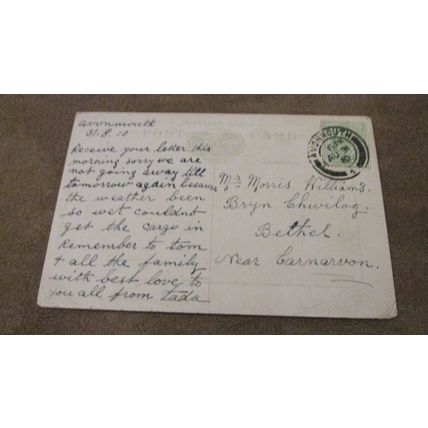 avonmouth
31.8.10
POST CARD
Receive your letter this
morning sorry we are
not going away till
tomorrow again because
the weather been
so wet couldnt
get the cargo in
Remember to tom
+ all the family
with best love to
you all from tada
AVONMOUTH
Mr Morris Williams.
Bryn Chwilog.
Bethel.
Near Carnarvon.